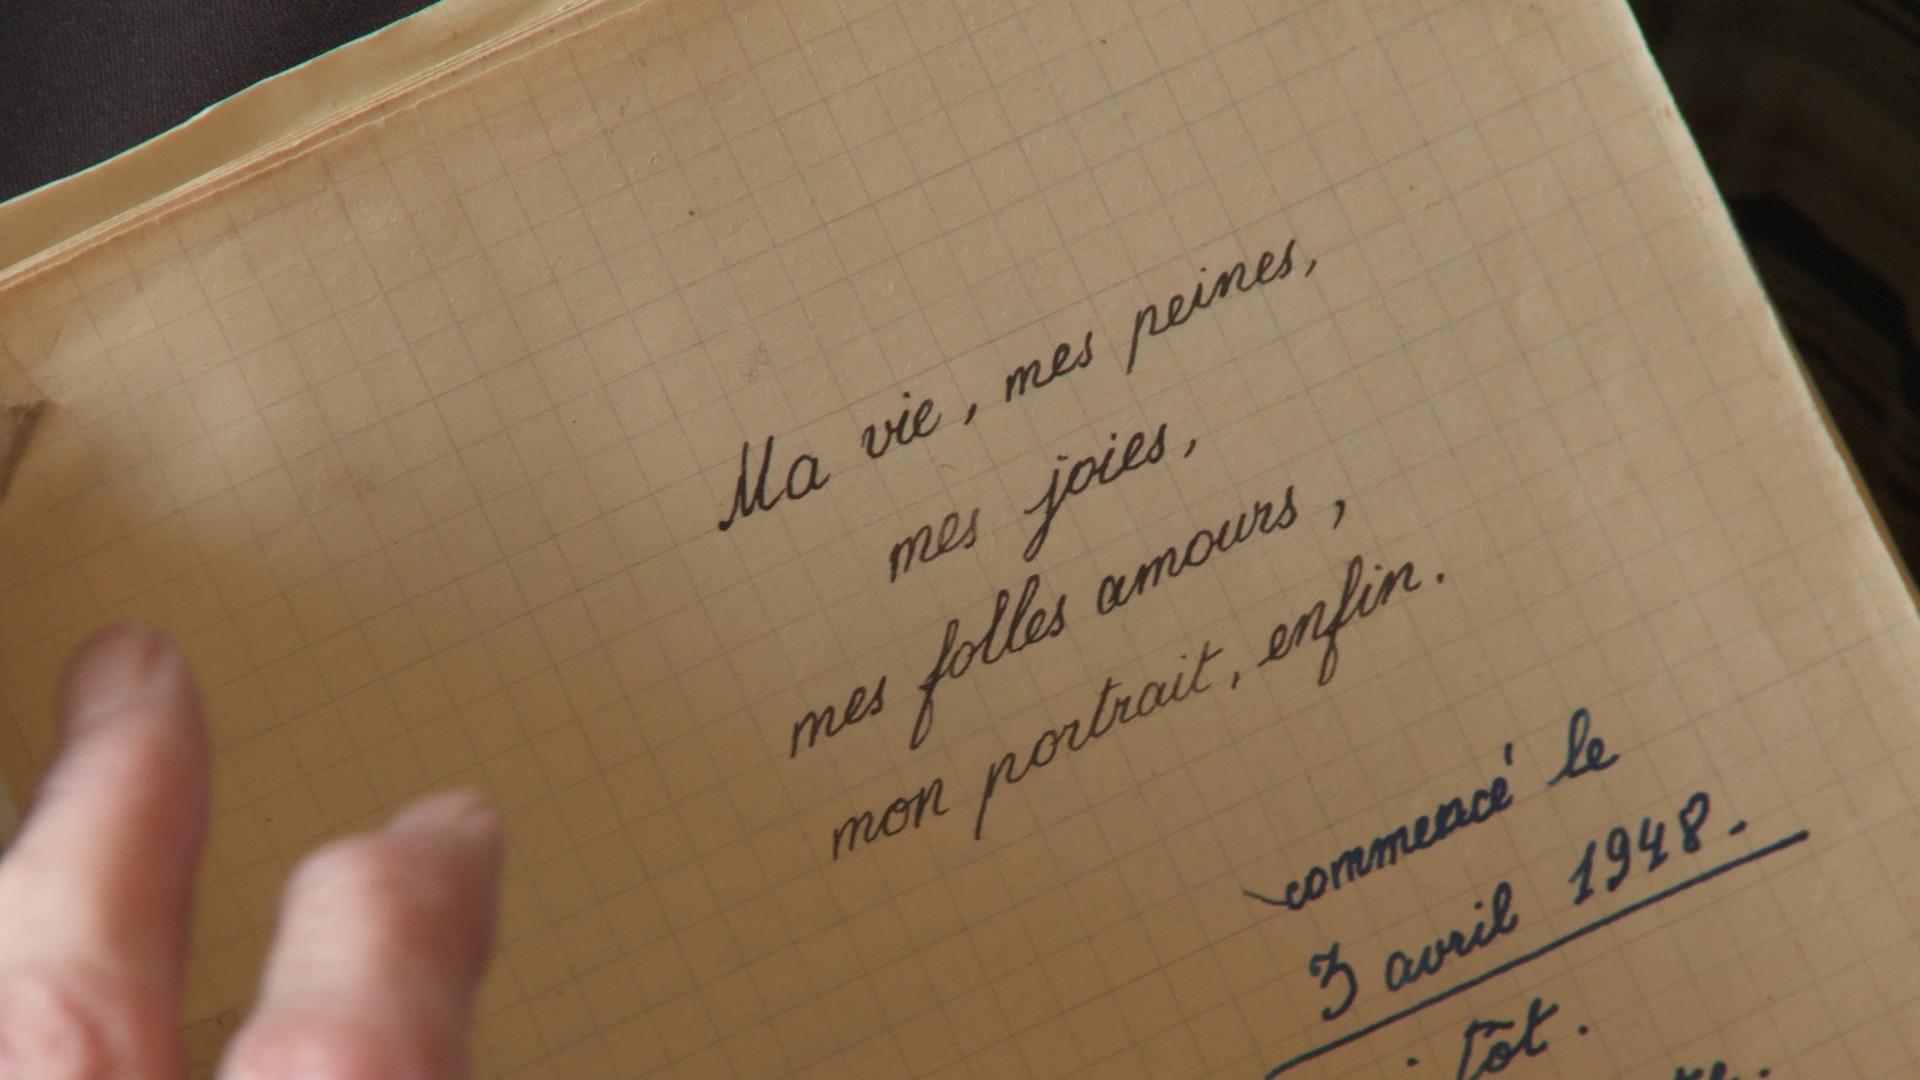 Ma vie, mes peines,
mes joies,
mes folles amours,
mon portrait, enfin.
commencé le
3 avril 1948.
tôt.